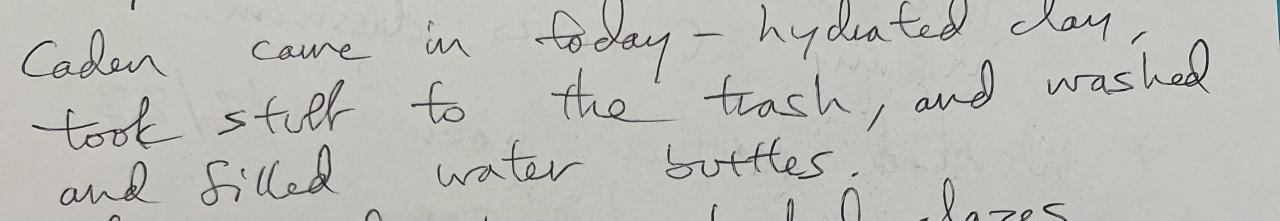 Caden came in today - hydrated clay,
took stuff to the trash, and washed
and filled water bottles.
glazes